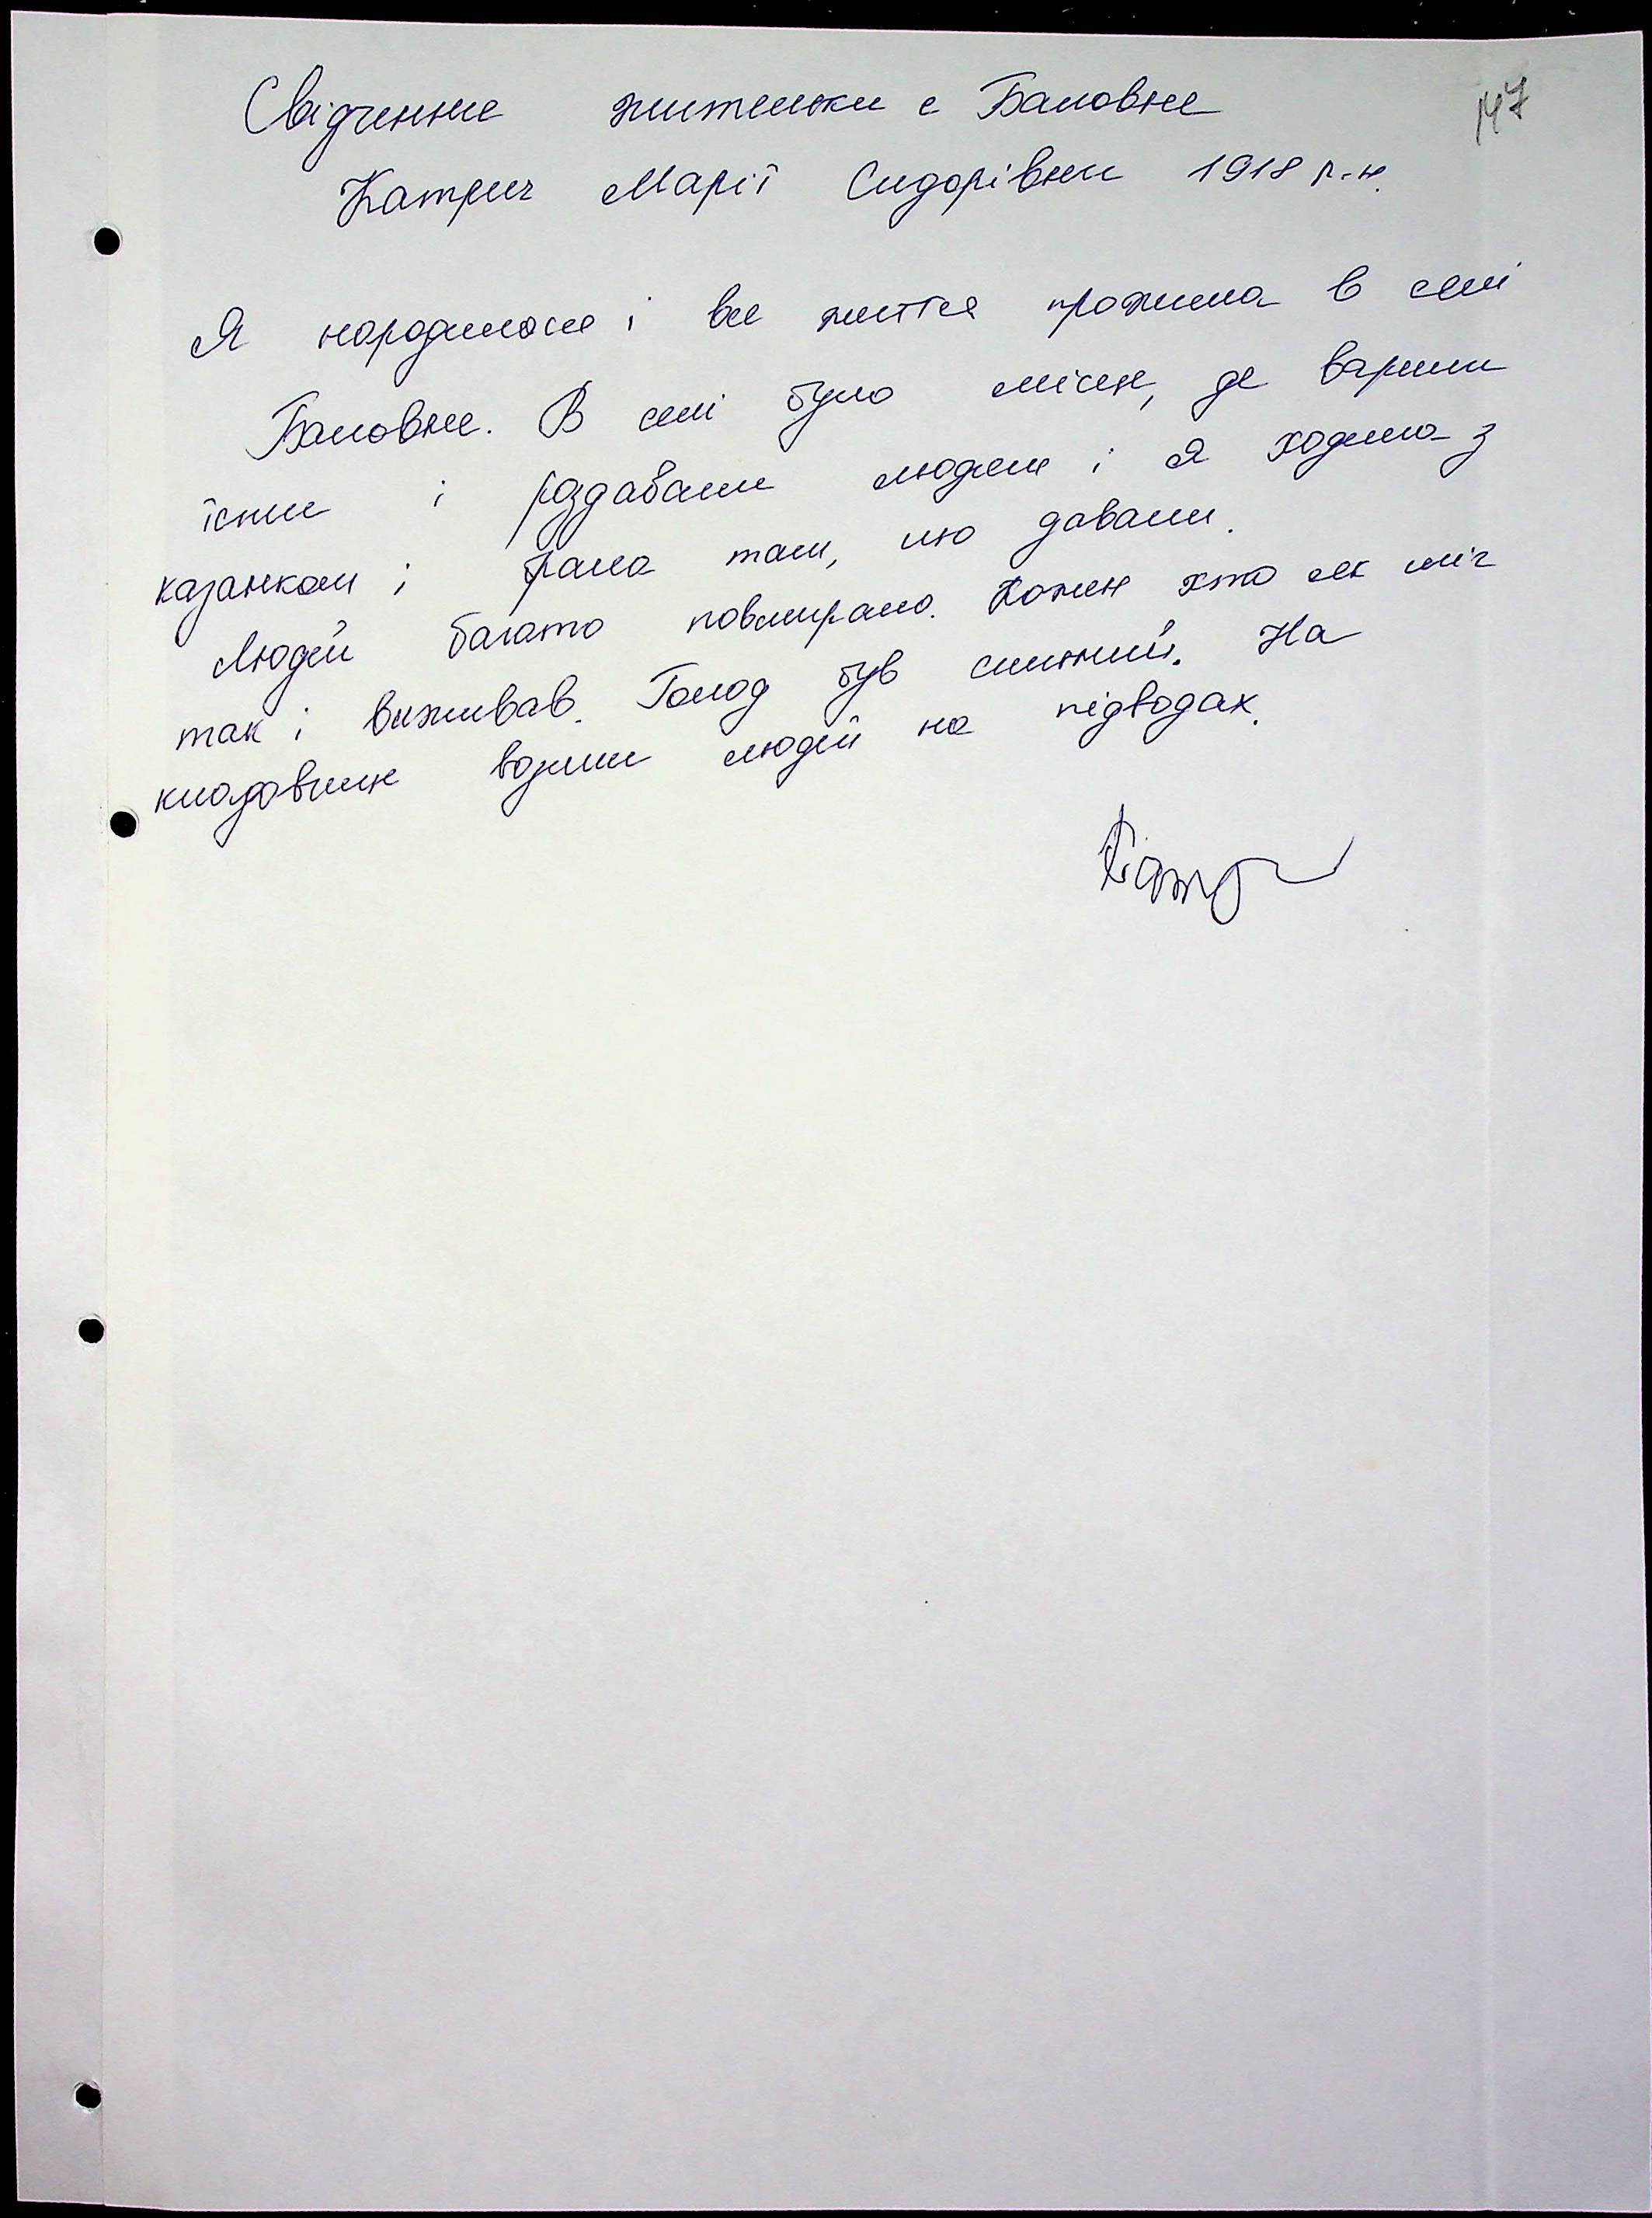 147
Свідчення жительки с Баловне
Катрич Марії Сидорівни 1918 р.н.
Я народилася і все життя прожила в селі
Баловне. В селі було місце, де варили
їсти і роздавали людям і я ходила з
казанком і брала там, що давали.
Людей багато повмирало. Кожен хто як міг
так і виживав. Голод був сильний. На
кладовище возили людей на підводах.